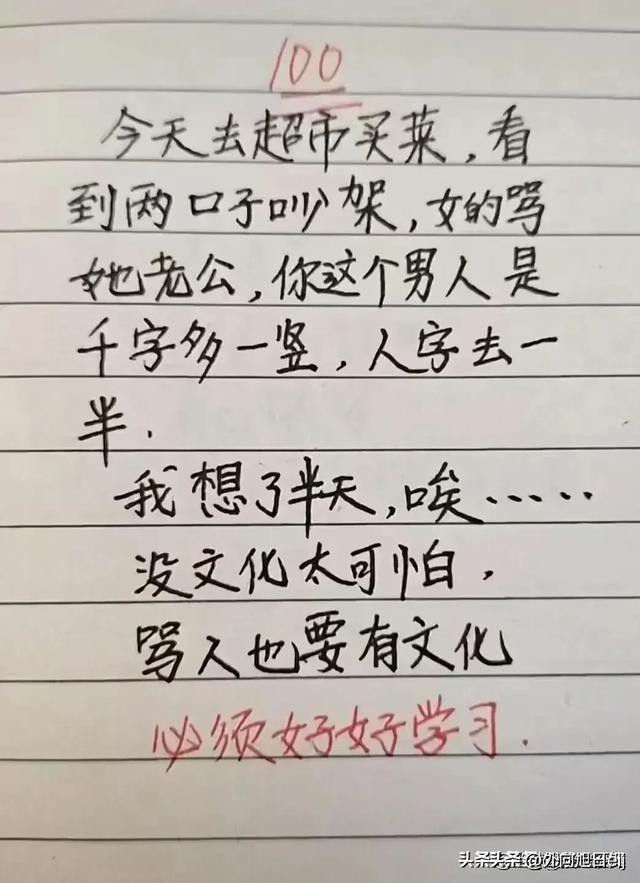 100
今天去超市买菜,看
到两口子吵架,女的骂
她老公,你这个男人是
千字多一竖,人字去一
半.
我想了半天,唉·····
没文化太可怕.
骂人也要有文化
必须好好学习.